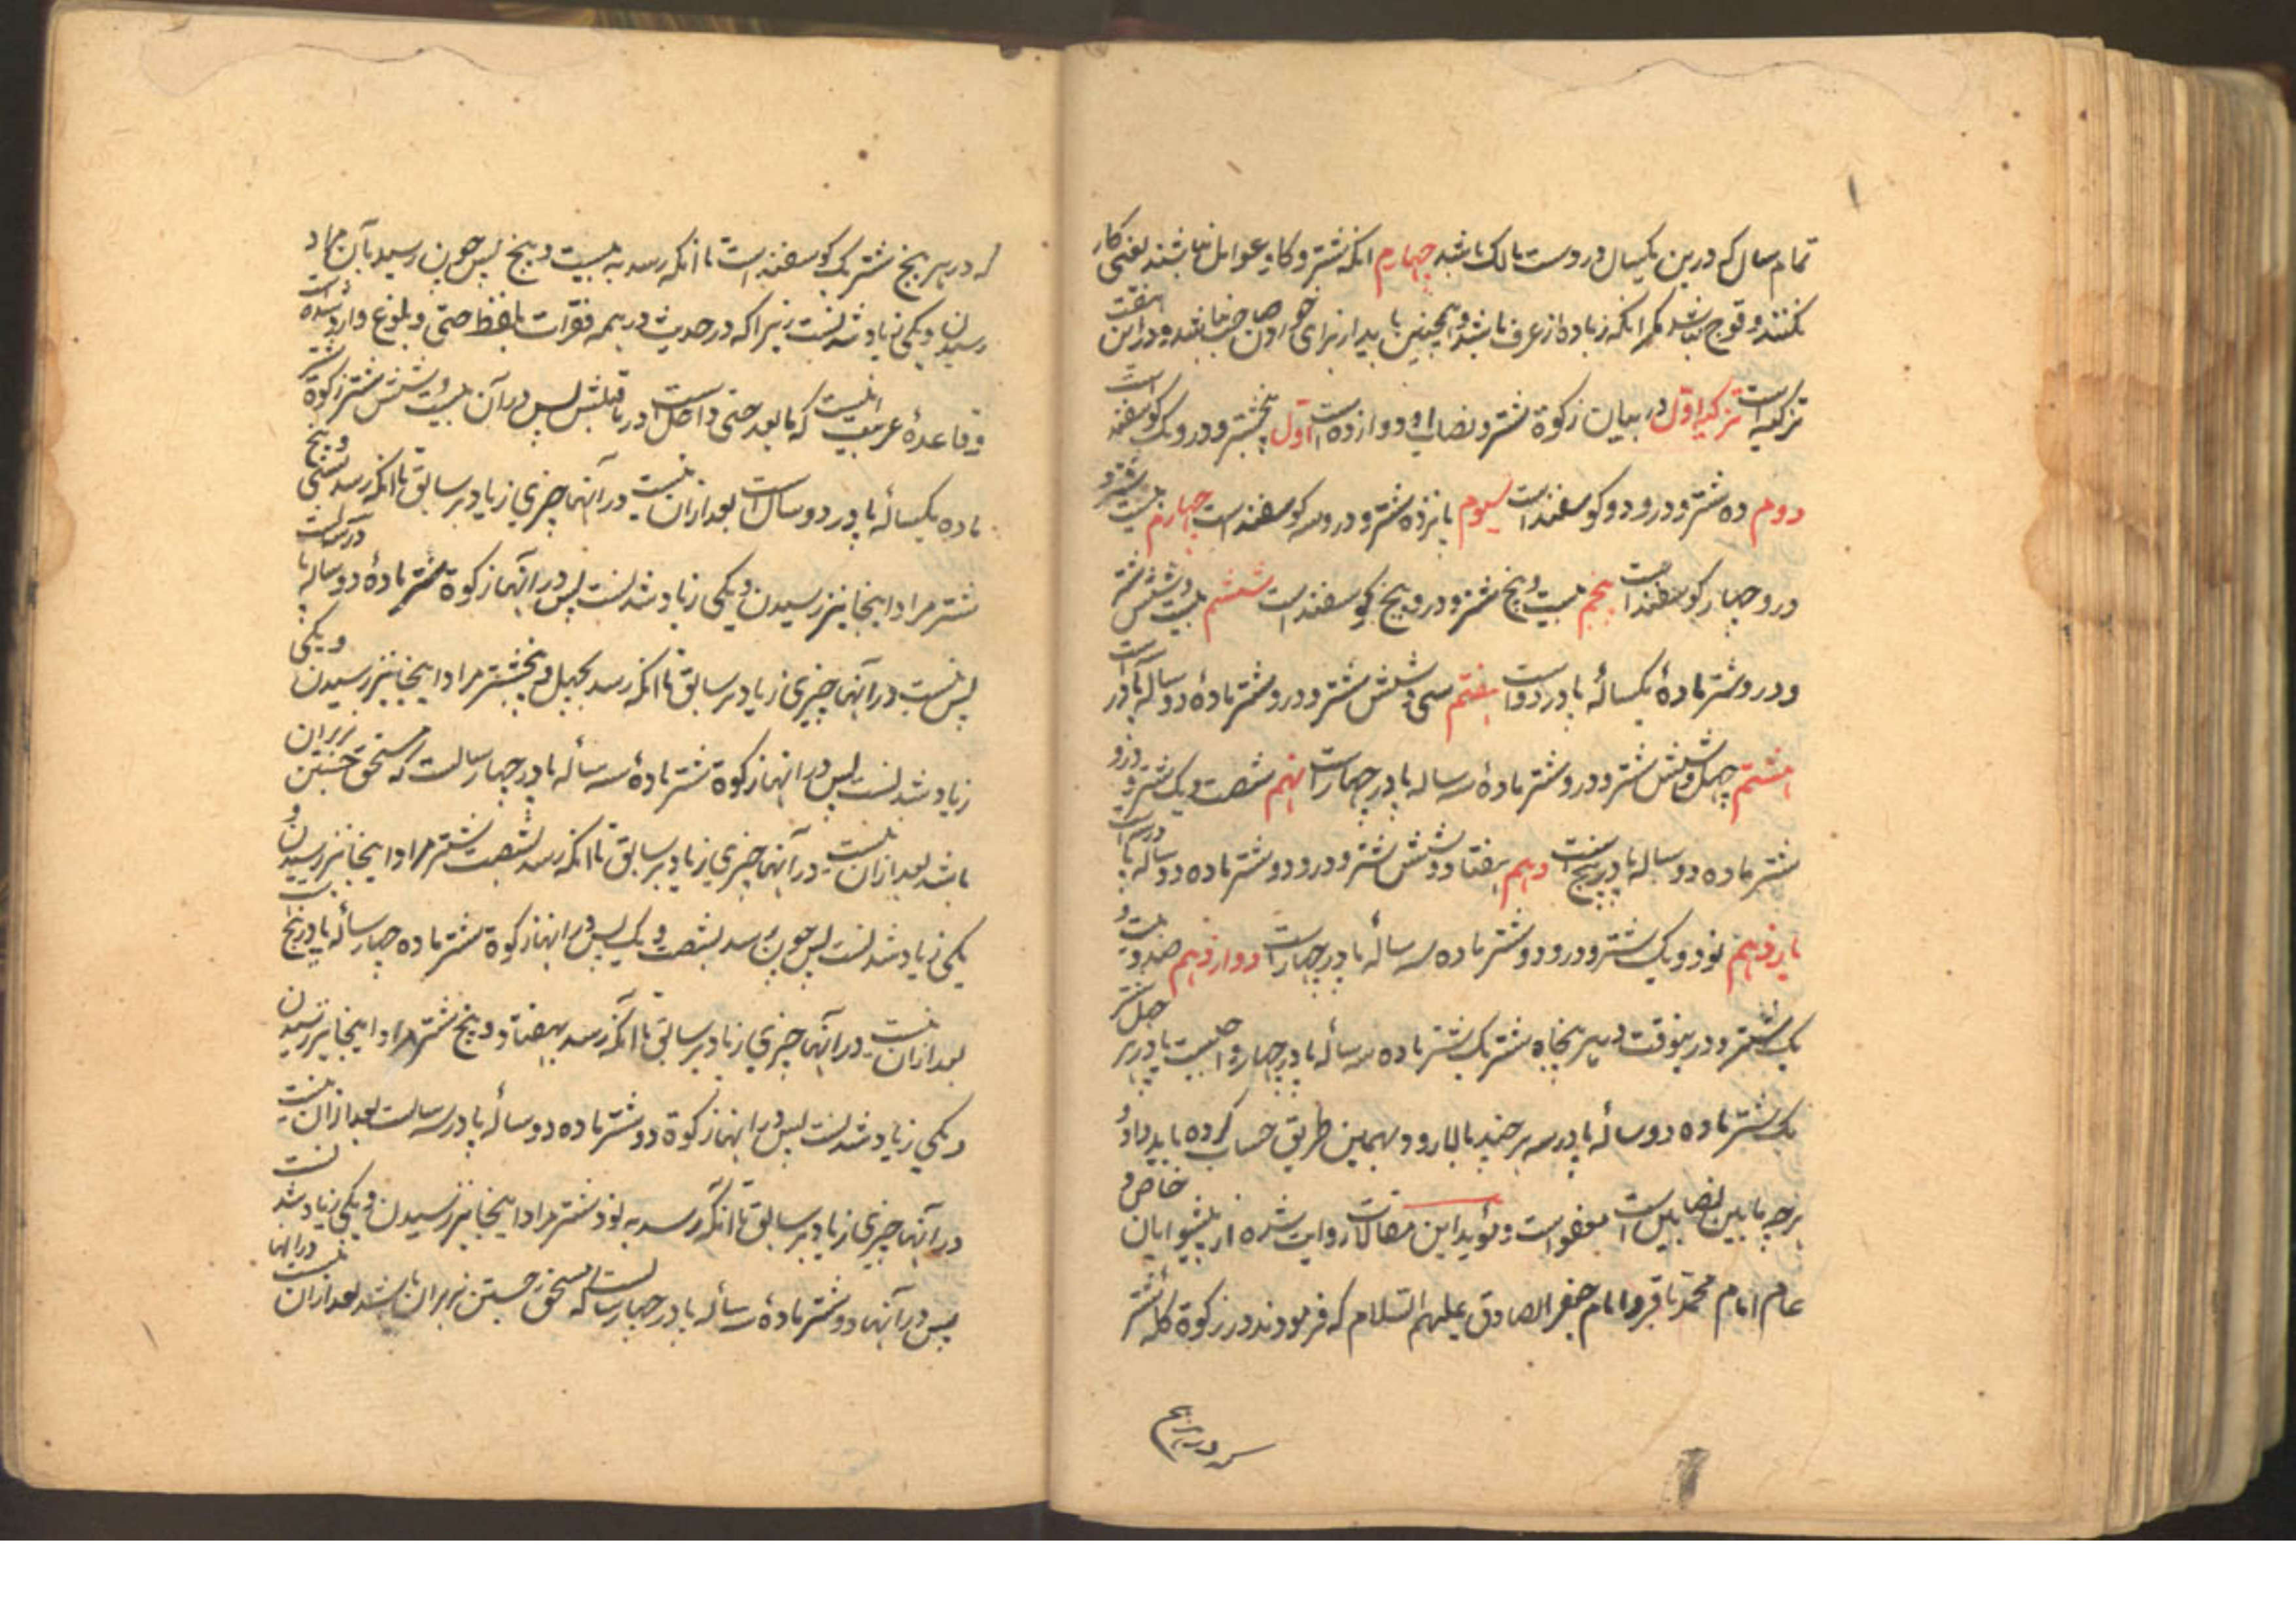 تمام سال که درین یکسال در دست مالک باشد چهارم انکه شتر و کاو عوامل نباشند یعنی کار
نکنند و قوج نباشد مکر انکه زیاده از عرف باشد و همچنین باید از برای خوردن صاحب نباشد و دراین هفت
تزکیه است تزکیه اول در بیان زکوة شتر و نصاب او دوازده است اول پنجشتر و در و یک کوسفند است
دوم ده شتر و در و دو کوسفند است سیوم پانزده شتر و در و سه کوسفند است چهارم بیست شتر و
در و چهار کوسفند است پنجم بیست و پنج شتر و در و پنج کوسفند است ششم بیست و شش شتر
و در و شتر مادهٔ یکسالهٔ پا در دو است هفتم سی و شش شتر و در و شتر مادهٔ دو ساله پا در است
هشتم چهل و شش شتر و در و شتر مادهٔ سه ساله پا در چهار است نهم شصت و یک شتر و در و
شتر ماده دو ساله پا در پنج است دهم هفتاد و شش شتر و در و دو شتر ماده دو ساله پا در سه است
یازدهم نود و یک شتر و در و دو شتر ماده سه سالهٔ پا در چهار است دوازدهم صد و بیست و
یک شتر و درینوقت در هر پنجاه شتر یک شتر ماده سه سالهٔ پا در چهار واجبست یا در هر چهل شتر
یک شتر ماده دو سالهٔ پا در سه هر چند بالا رود بهمین طریق حساب کرده باید داد و
هرچه مابین نصابین است معفو است و مؤید این مقالات روایت شده از پیشوایان خاص و
عام امام محمد باقر و امام جعفر الصادق علیهم السلام که فرمودند در زکوة کلهٔ شتر
که در هر پنج
که در هر پنج شتر یک کوسفند است تا انکه رسد به بیست و پنج پس چون رسید بآن مراد
رسیدن و یکی زیاد شدنست زیرا که در حدیث در همه فقرات بلفظ حتی و بلوغ وارد شده است
و قاعدهٔ عربیت اینست که مابعد حتی داخل است در ماقبلش پس در آن بیست و شش شتر زکوة شتر
ماده یکسالهٔ پا در دو سال است بعد ازان نیست در آنها چیزی زیاد بر سابق تا انکه رسد بسی و پنج
شتر مراد اینجا نیز رسیدن و یکی زیاد شدنست پس در انها زکوة شتر مادهٔ دو ساله پا در سه است
پس نیست در انها چیزی زیاد بر سابق تا انکه رسد بچهل و پنجشتر مراد اینجا نیز رسیدن و یکی
زیاد شدنست پس در انها زکوة شتر مادهٔ سه سالهٔ پا در چهار سالست که مستحق جستن بر بران
باشد بعد ازان نیست در آنها چیزی زیاد بر سابق تا انکه رسد بشصت شتر مراد اینجا نیز رسیدن و
یکی زیاد شدنست پس چون رسد بشصت و یک پس در انها زکوة شتر ماده چهار سالهٔ پا در پنج است
بعد ازان نیست در انها چیزی زیاد بر سابق تا انکه رسد بهفتاد و پنج شتر مراد اینجا نیز رسیدن
و یکی زیاد شدنست پس در انها زکوة دو شتر ماده دو سالهٔ پا در سه سالست بعد ازان نیست
در انها چیزی زیاد بر سابق تا انکه رسد به نود شتر مراد اینجا نیز رسیدن و یکی زیاد شدنست
پس در آنها دو شتر مادهٔ سه سالهٔ پا در چهار سالست که مستحق جستن نر بران باشد بعد ازان نیست در انها